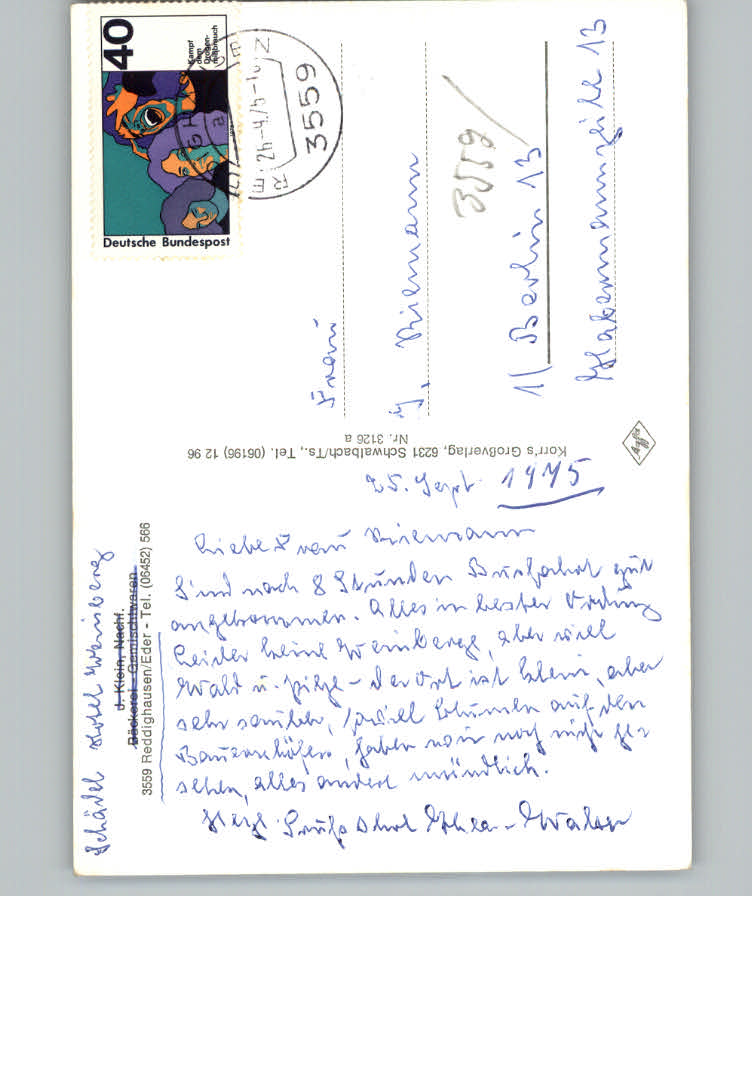 Schädel Hotel Weinberg
J. Klein, Nachf.
Bäckerei - Gemischtwaren
3559 Reddighausen/Eder - Tel. (06452) 566
25. Sept. 1975
Liebe Frau Niemann
Sind nach 8 Stunden Busfahrt gut
angekommen. Alles in bester Ordnung
Leider keine Weinberge, aber viel
Wald u. Pilze - der Ort ist klein, aber
sehr sauber, soviel Blumen auf den
Bauernhöfen, haben wir noch nicht ge
sehen, alles andere mündlich.
Herzl. Grüße
Korr's Großverlag, 6231 Schwalbach/Ts., Tel. (06196) 12 96
Nr. 3126 a
Agfa
40
Kampf
dem
Drogen-
mißbrauch
Deutsche Bundespost
3559
Frau
Niemann
3559
1/ Berlin 13
Halemannzeile 13